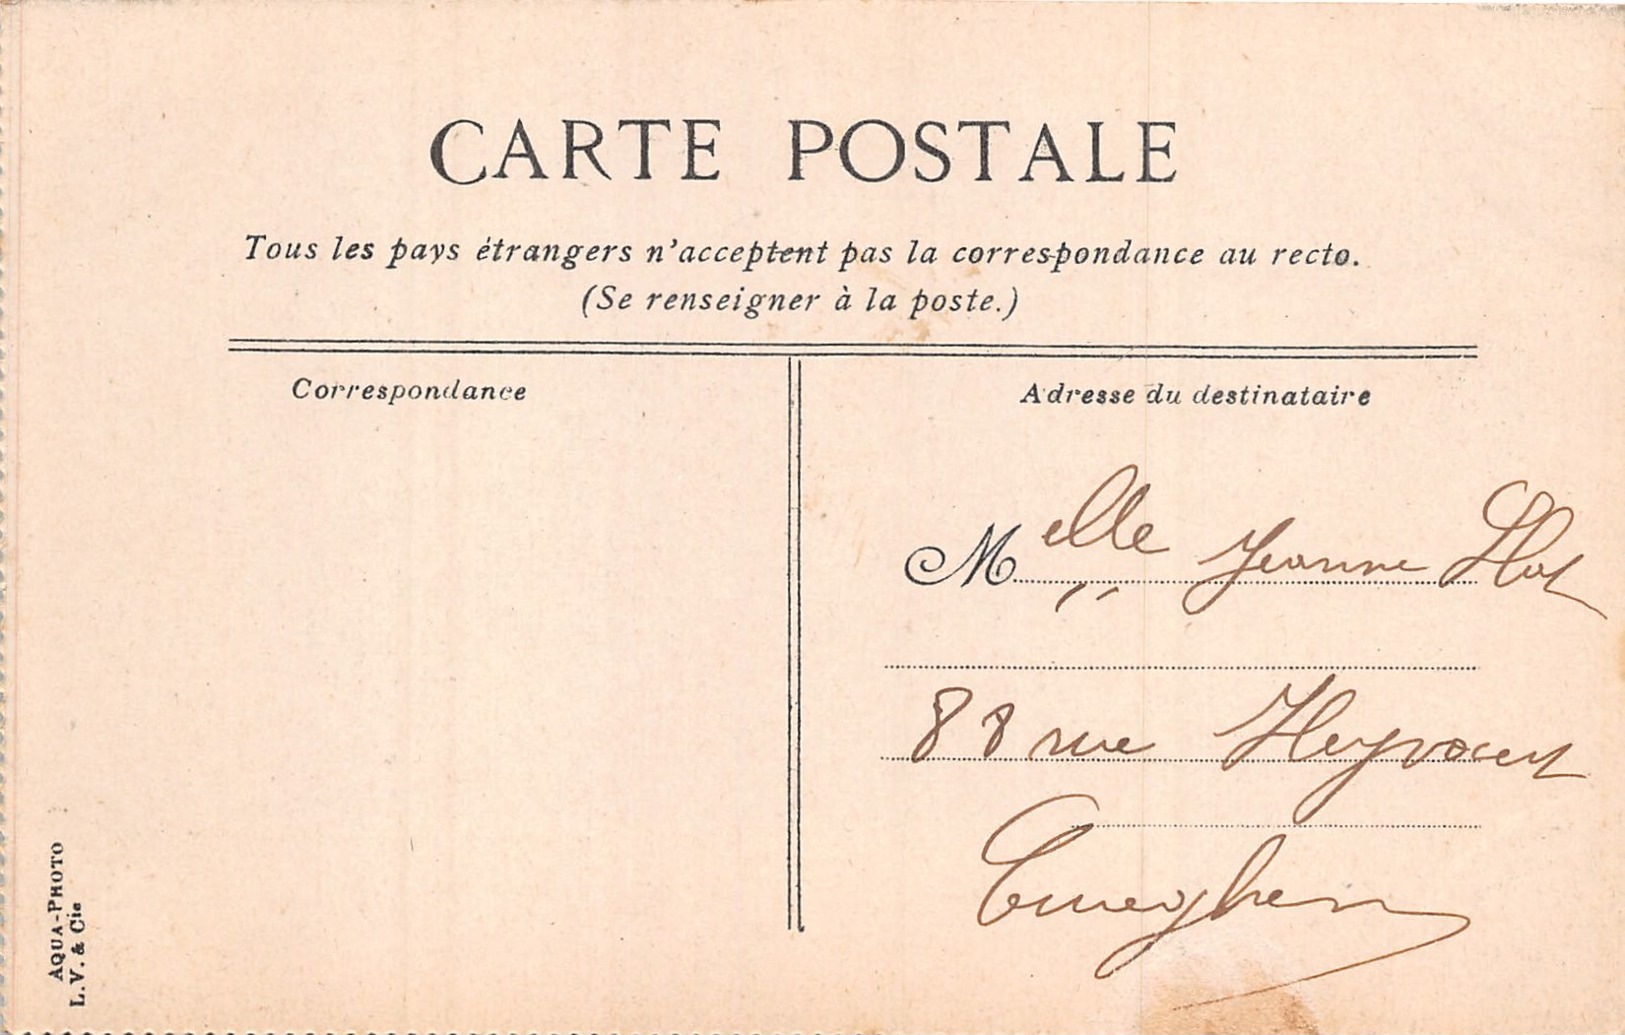 CARTE POSTALE
Tous les pays étrangers n'acceptent pas la correspondance au recto.
(Se renseigner à la poste.)
Correspondance
Adresse du destinataire
Melle Jeanne
88 rue
AQUA-PHOTO
L.V. & Cie